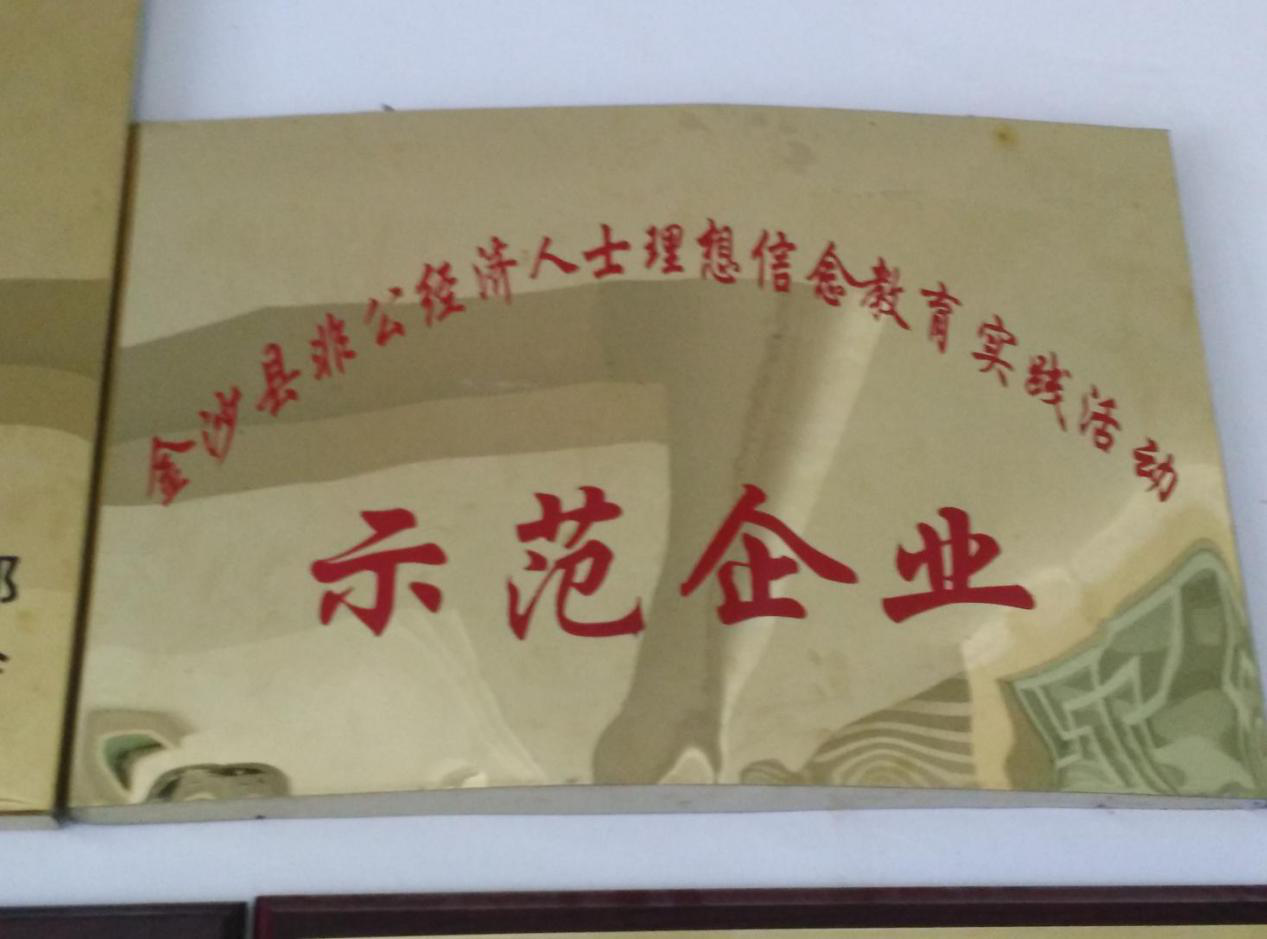 金沙县非公经济人士理想信念教育实践活动
示范企业